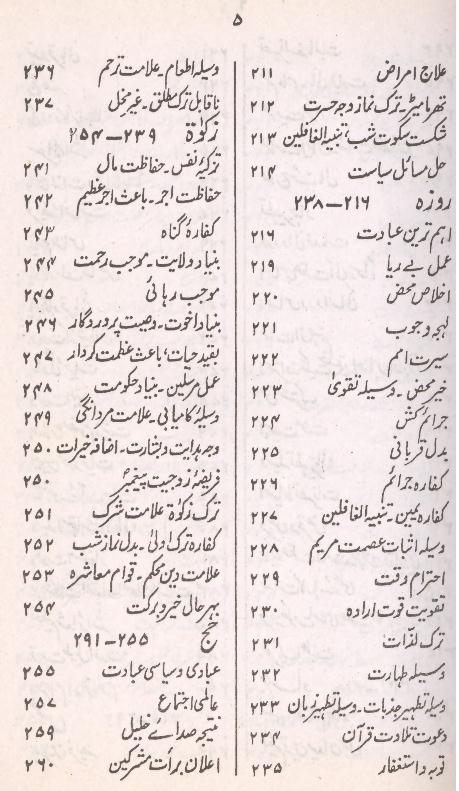 ۵
علاج امراض ۲۱۱
تھرمامیٹر۔ ترک نماز وجہ حسرت ۲۱۲
شکست سکوت شب، تنبیہ الغافلین ۲۱۳
حل مسائل سیاست ۲۱۴
روزہ ۲۱۶ – ۲۳۸
اہم ترین عبادت ۲۱۶
عمل بے ریا ۲۱۹
اخلاص محض ۲۲۰
لہجہ وجوب ۲۲۱
سیرت امم ۲۲۲
خیر محض۔ وسیلہ تقویٰ ۲۲۳
جرائم کش ۲۲۴
بدل قربانی ۲۲۵
کفارہ جرائم ۲۲۶
کفارہ یمین۔ تنبیہ الغافلین ۲۲۷
وسیلہ اثبات عصمت مریم ۲۲۸
احترام وقت ۲۲۹
تقویت قوت ارادہ ۲۳۰
ترک لذّات ۲۳۱
وسیلہ طہارت ۲۳۲
وسیلہ تطہیر جذبات۔ وسیلہ تطہیر زبان ۲۳۳
دعوت تلاوت قرآن ۲۳۴
توبہ و استغفار ۲۳۵
وسیلہ اطعام۔ علامت ترحم ۲۳۶
ناقابل ترک مطلق۔ غیر مخل ۲۳۷
زکوٰۃ ۲۳۹ – ۲۵۴
تزکیۂ نفس۔ حفاظت مال ۲۴۱
حفاظت اجر۔ باعث اجر عظیم ۲۴۲
کفارۂ گناہ ۲۴۳
بنیاد ولایت۔ موجب رحمت ۲۴۴
موجب رہائی ۲۴۵
بنیاد اخوت۔ وصیت پروردگار ۲۴۶
بقید حیات، باعث عظمت کردار ۲۴۷
عمل مرسلین۔ بنیاد حکومت ۲۴۸
وسیلۂ کامیابی۔ علامت مردانگی ۲۴۹
وجہ ہدایت و بشارت۔ اضافہ خیرات ۲۵۰
فریضۂ زوجیت پیغمبرؐ ۲۵۰
ترک زکوٰۃ علامت شرک ۲۵۱
کفارہ ترک اولیٰ۔ بدل نماز شب ۲۵۲
علامت دین محکم۔ قوام معاشرہ ۲۵۳
بہر حال خیر و برکت ۲۵۴
حج ۲۵۵ – ۲۹۱
عبادی و سیاسی عبادت ۲۵۵
عالمی اجتماع ۲۵۷
نتیجہ صدائے خلیل ۲۵۹
اعلان برأت مشرکین ۲۶۰